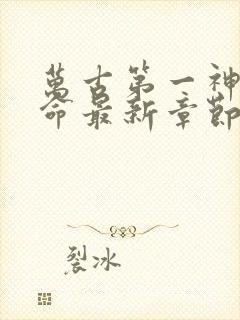 萬古第一神
命最新章節
裂冰